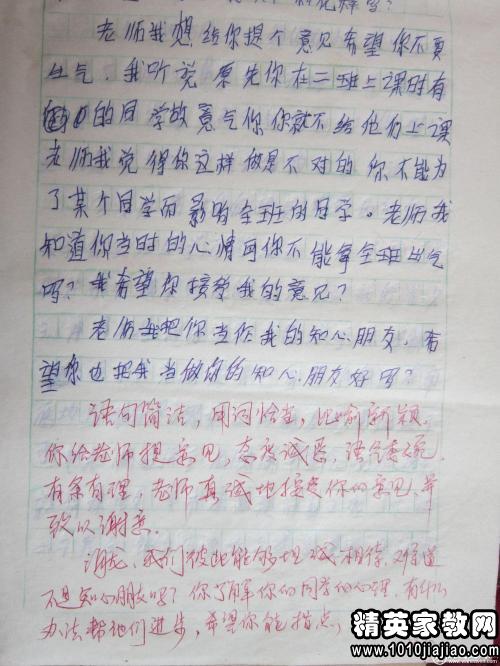 老师我想给你提个意见希望你不要
生气。我听说原先你在二班上课时有
的同学故意气你你就不给他们上课
老师我觉得你这样做是不对的你不能为
了某个同学而影响全班的同学。老师我
知道你当时的心情可你不能拿全班出气
吗？我希望你接受我的意见？
老师我把你当作我的知心朋友，希
望你也把我当做你的知心朋友好吗？
语句简洁，用词恰当，比喻新颖。
你给老师提意见，态度诚恳，语气委婉，
有条有理，老师真诚地接受你的意见，并
致以谢意。
我们彼此能够坦诚相待，难道
不是知心朋友吗？你了解你的同学的心理，有什么
办法帮他们进步，希望你能指点，
精英家教网
www.1010jiajiao.com